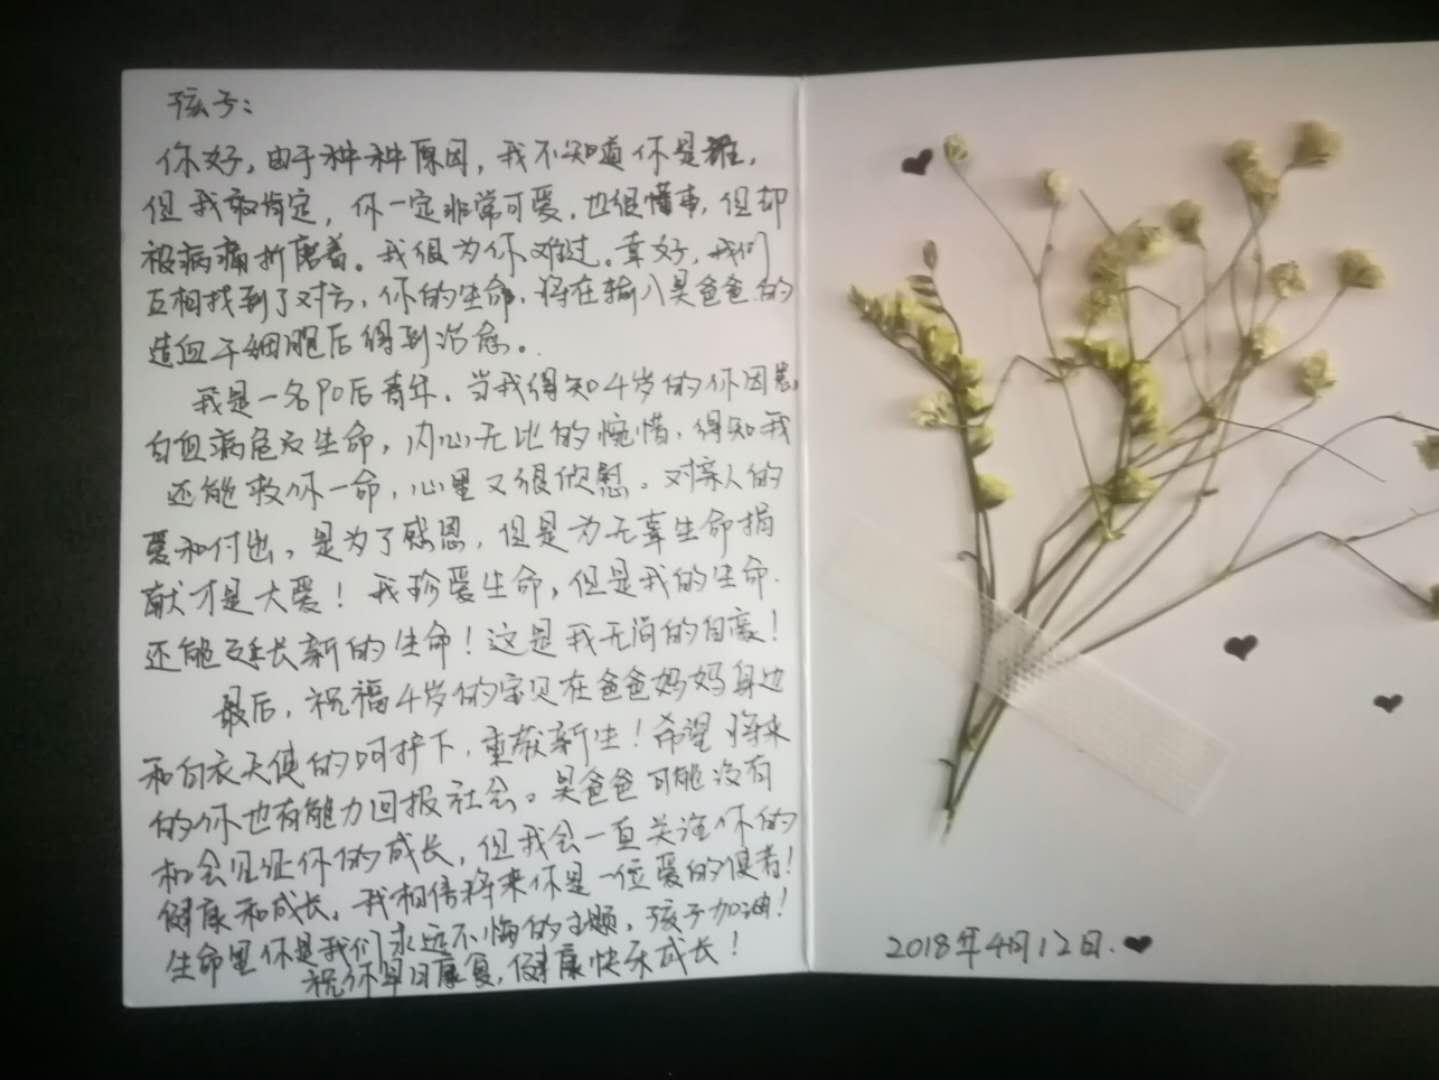 孩子：
你好，由于种种原因，我不知道你是谁，
但我敢肯定，你一定非常可爱，也很懂事，但却
被病痛折磨着。我很为你难过。幸好，我们
互相找到了对方，你的生命，将在输入吴爸爸的
造血干细胞后得到治愈。
我是一名90后青年，当我得知4岁的你因患
白血病危及生命，内心无比的惋惜，得知我
还能救你一命，心里又很欣慰。对亲人的
爱和付出，是为了感恩，但是为无辜生命捐
献才是大爱！我珍爱生命，但是我的生命
还能延长新的生命！这是我无尚的自豪！
最后，祝福4岁的宝贝在爸爸妈妈身边
和白衣天使的呵护下，重获新生！希望将来
的你也有能力回报社会。吴爸爸可能没有
机会见证你的成长，但我会一直关注你的
健康和成长，我相信将来你是一位爱的使者！
生命里你是我们永远不悔的主题，孩子加油！
祝你早日康复，健康快乐成长！
2018年4月12日